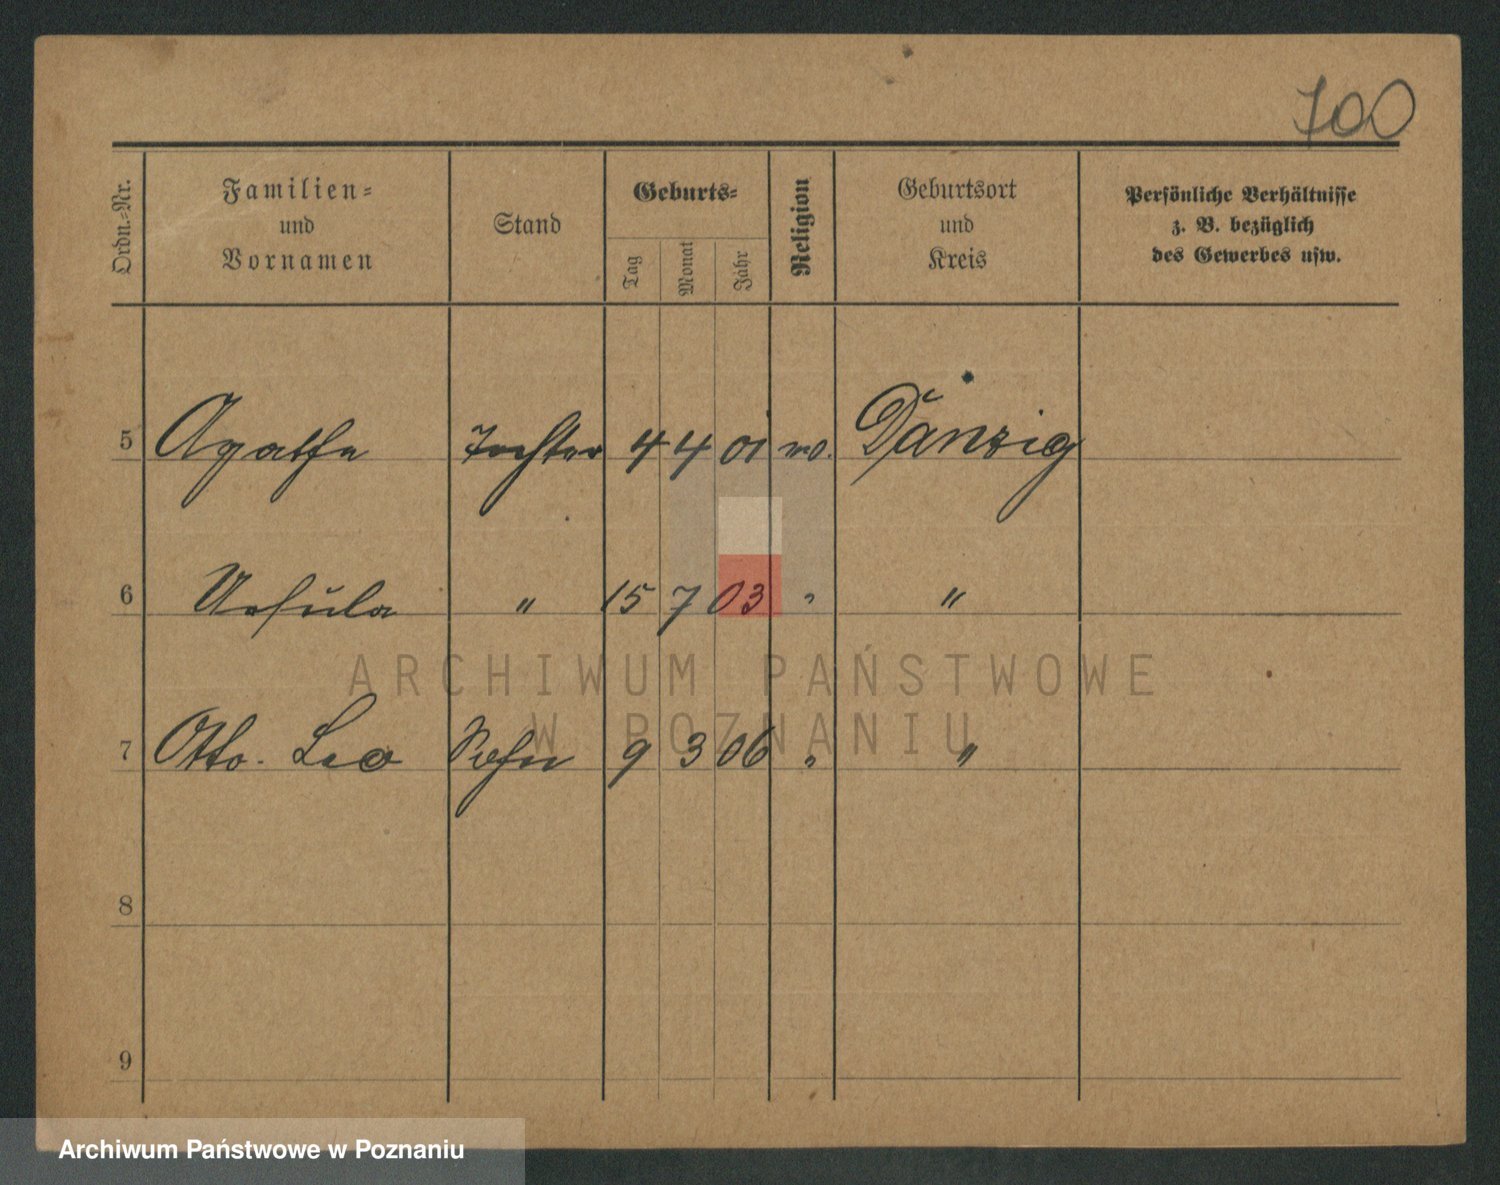 700
Ordn.-Nr.
Familien-
und
Vornamen
Stand
Geburts-
Tag
Monat
Jahr
Religion
Geburtsort
und
Kreis
Persönliche Verhältnisse
z. B. bezüglich
des Gewerbes usw.
5 Agathe Tochter 4 4 01 mo. Danzig
6 Ursula " 15 7 03 " "
7 Otto. Leo Sohn 9 3 06 " "
8
9
ARCHIWUM PAŃSTWOWE
W POZNANIU
Archiwum Państwowe w Poznaniu